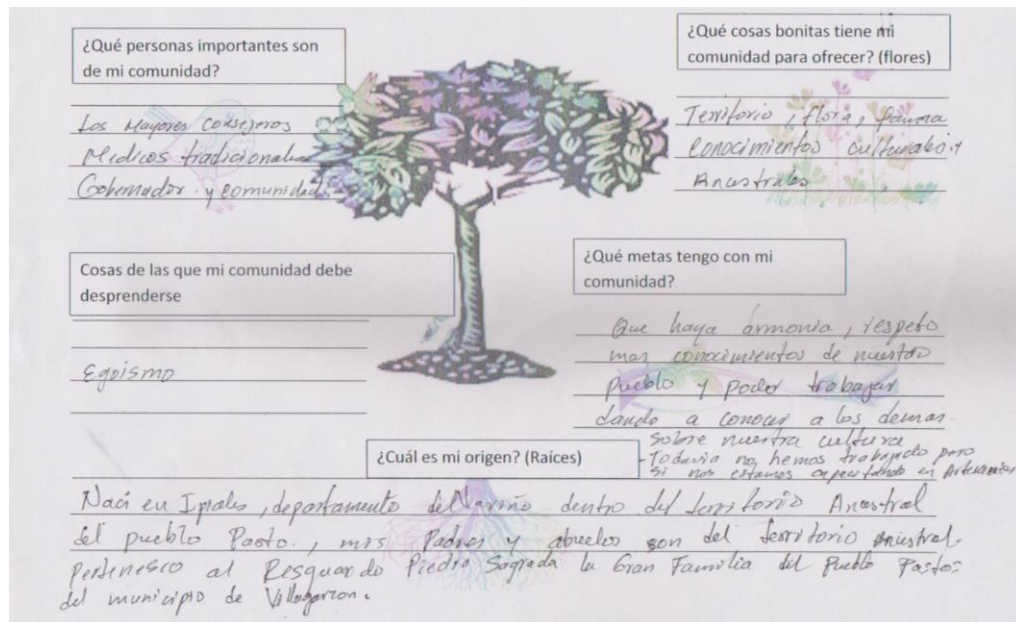 ¿Qué personas importantes son
de mi comunidad?
Los Mayores Consejeros
Medicos tradicionales
Gobernador y comunidad.
¿Qué cosas bonitas tiene mi
comunidad para ofrecer? (flores)
Territorio, flora, fauna
Conocimientos culturales y
Ancestrales
Cosas de las que mi comunidad debe
desprenderse
Egoismo
¿Qué metas tengo con mi
comunidad?
Que haya armonia, respeto
mas conocimientos de nuestro
pueblo y poder trabajar
dando a conocer a los demas.
sobre nuestra cultura
- Todavia no hemos trabajado pero
si nos estamos capacitando en Artesanias
¿Cuál es mi origen? (Raíces)
Naci en Ipiales, departamento del Nariño dentro del territorio Ancestral
del pueblo Pasto., mis Padres y abuelos son del territorio
Pertenesco al Resguardo Piedra Sagrada la Gran Familia del Pueblo Pastos
del municipio de Villagarzon.